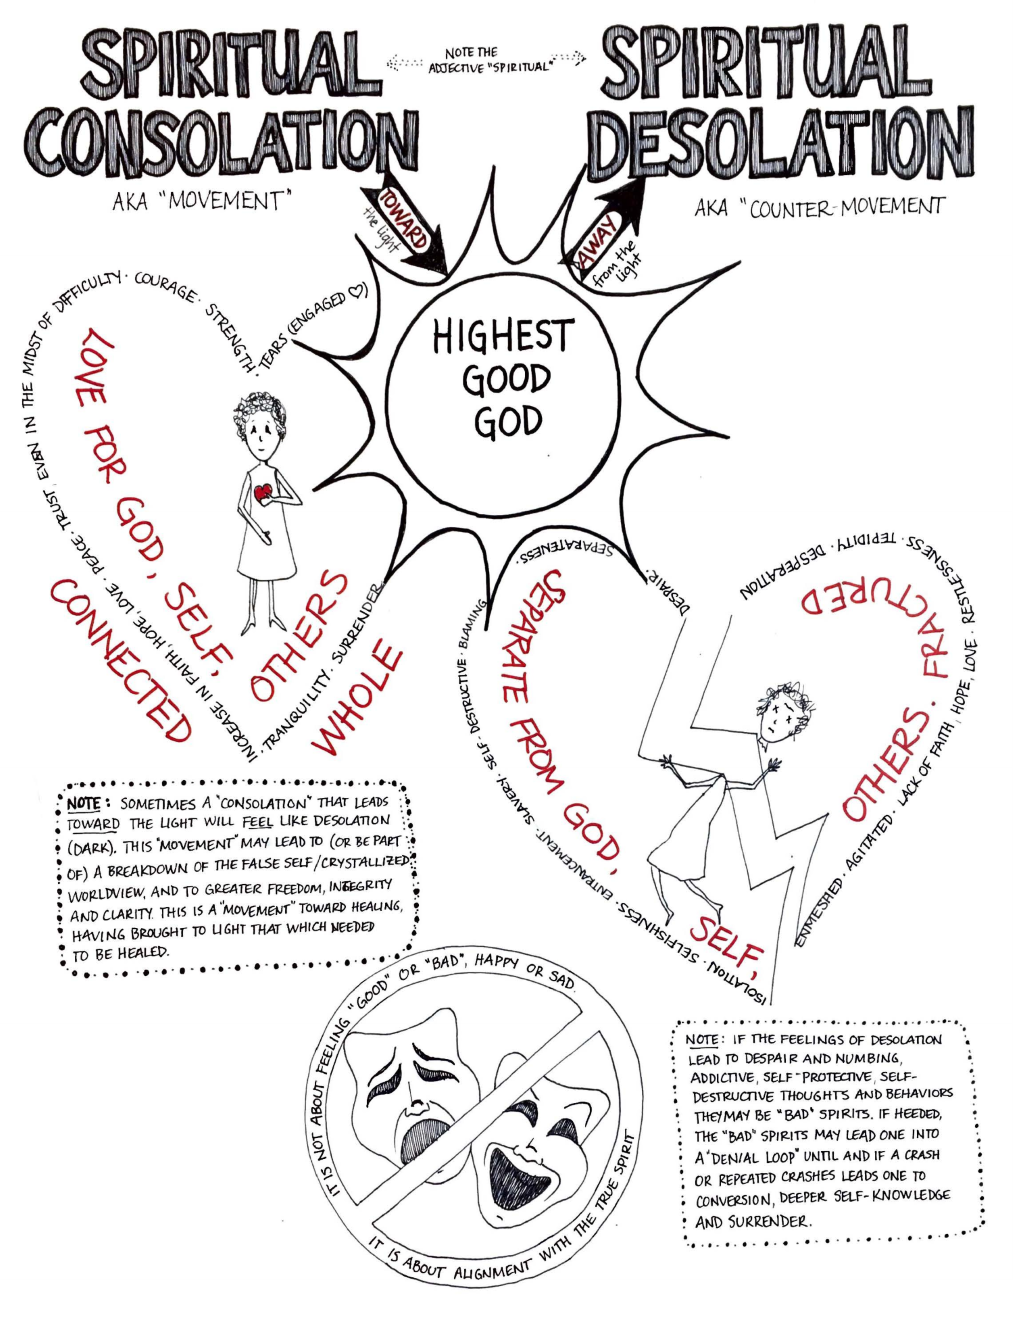 SPIRITUAL
CONSOLATION
AKA "MOVEMENT"
NOTE THE
ADJECTIVE "SPIRITUAL"
SPIRITUAL
DESOLATION
AKA "COUNTER-MOVEMENT
TOWARD
the light
AWAY
from the
light
HIGHEST
GOOD
GOD
INCREASE IN FAITH, HOPE, LOVE · PEACE · TRUST, EVEN IN THE MIDST OF DIFFICULTY · COURAGE · STRENGTH · TEARS (ENGAGED ♡)
· TRANQUILITY · SURRENDER
LOVE FOR GOD, SELF,
OTHERS
CONNECTED
WHOLE
ISOLATION · SELFISHNESS · ENTRANCEMENT · SLAVERY · SELF-DESTRUCTIVE · BLAMING
SEPARATENESS ·
DESPAIR ·
DESPERATION · TEPIDITY · RESTLESSNESS ·
LACK OF FAITH, HOPE, LOVE ·
ENMESHED · AGITATED ·
SEPARATE FROM GOD,
SELF,
OTHERS. FRACTURED
NOTE: SOMETIMES A "CONSOLATION" THAT LEADS
TOWARD THE LIGHT WILL FEEL LIKE DESOLATION
(DARK). THIS "MOVEMENT" MAY LEAD TO (OR BE PART
OF) A BREAKDOWN OF THE FALSE SELF/CRYSTALLIZED
WORLDVIEW, AND TO GREATER FREEDOM, INTEGRITY
AND CLARITY. THIS IS A "MOVEMENT" TOWARD HEALING,
HAVING BROUGHT TO LIGHT THAT WHICH NEEDED
TO BE HEALED.
IT IS NOT ABOUT FEELING "GOOD" OR "BAD", HAPPY OR SAD.
IT IS ABOUT ALIGNMENT WITH THE TRUE SPIRIT
NOTE: IF THE FEELINGS OF DESOLATION
LEAD TO DESPAIR AND NUMBING,
ADDICTIVE, SELF-PROTECTIVE, SELF-
DESTRUCTIVE THOUGHTS AND BEHAVIORS
THEY MAY BE "BAD" SPIRITS. IF HEEDED,
THE "BAD" SPIRITS MAY LEAD ONE INTO
A "DENIAL LOOP" UNTIL AND IF A CRASH
OR REPEATED CRASHES LEADS ONE TO
CONVERSION, DEEPER SELF-KNOWLEDGE
AND SURRENDER.